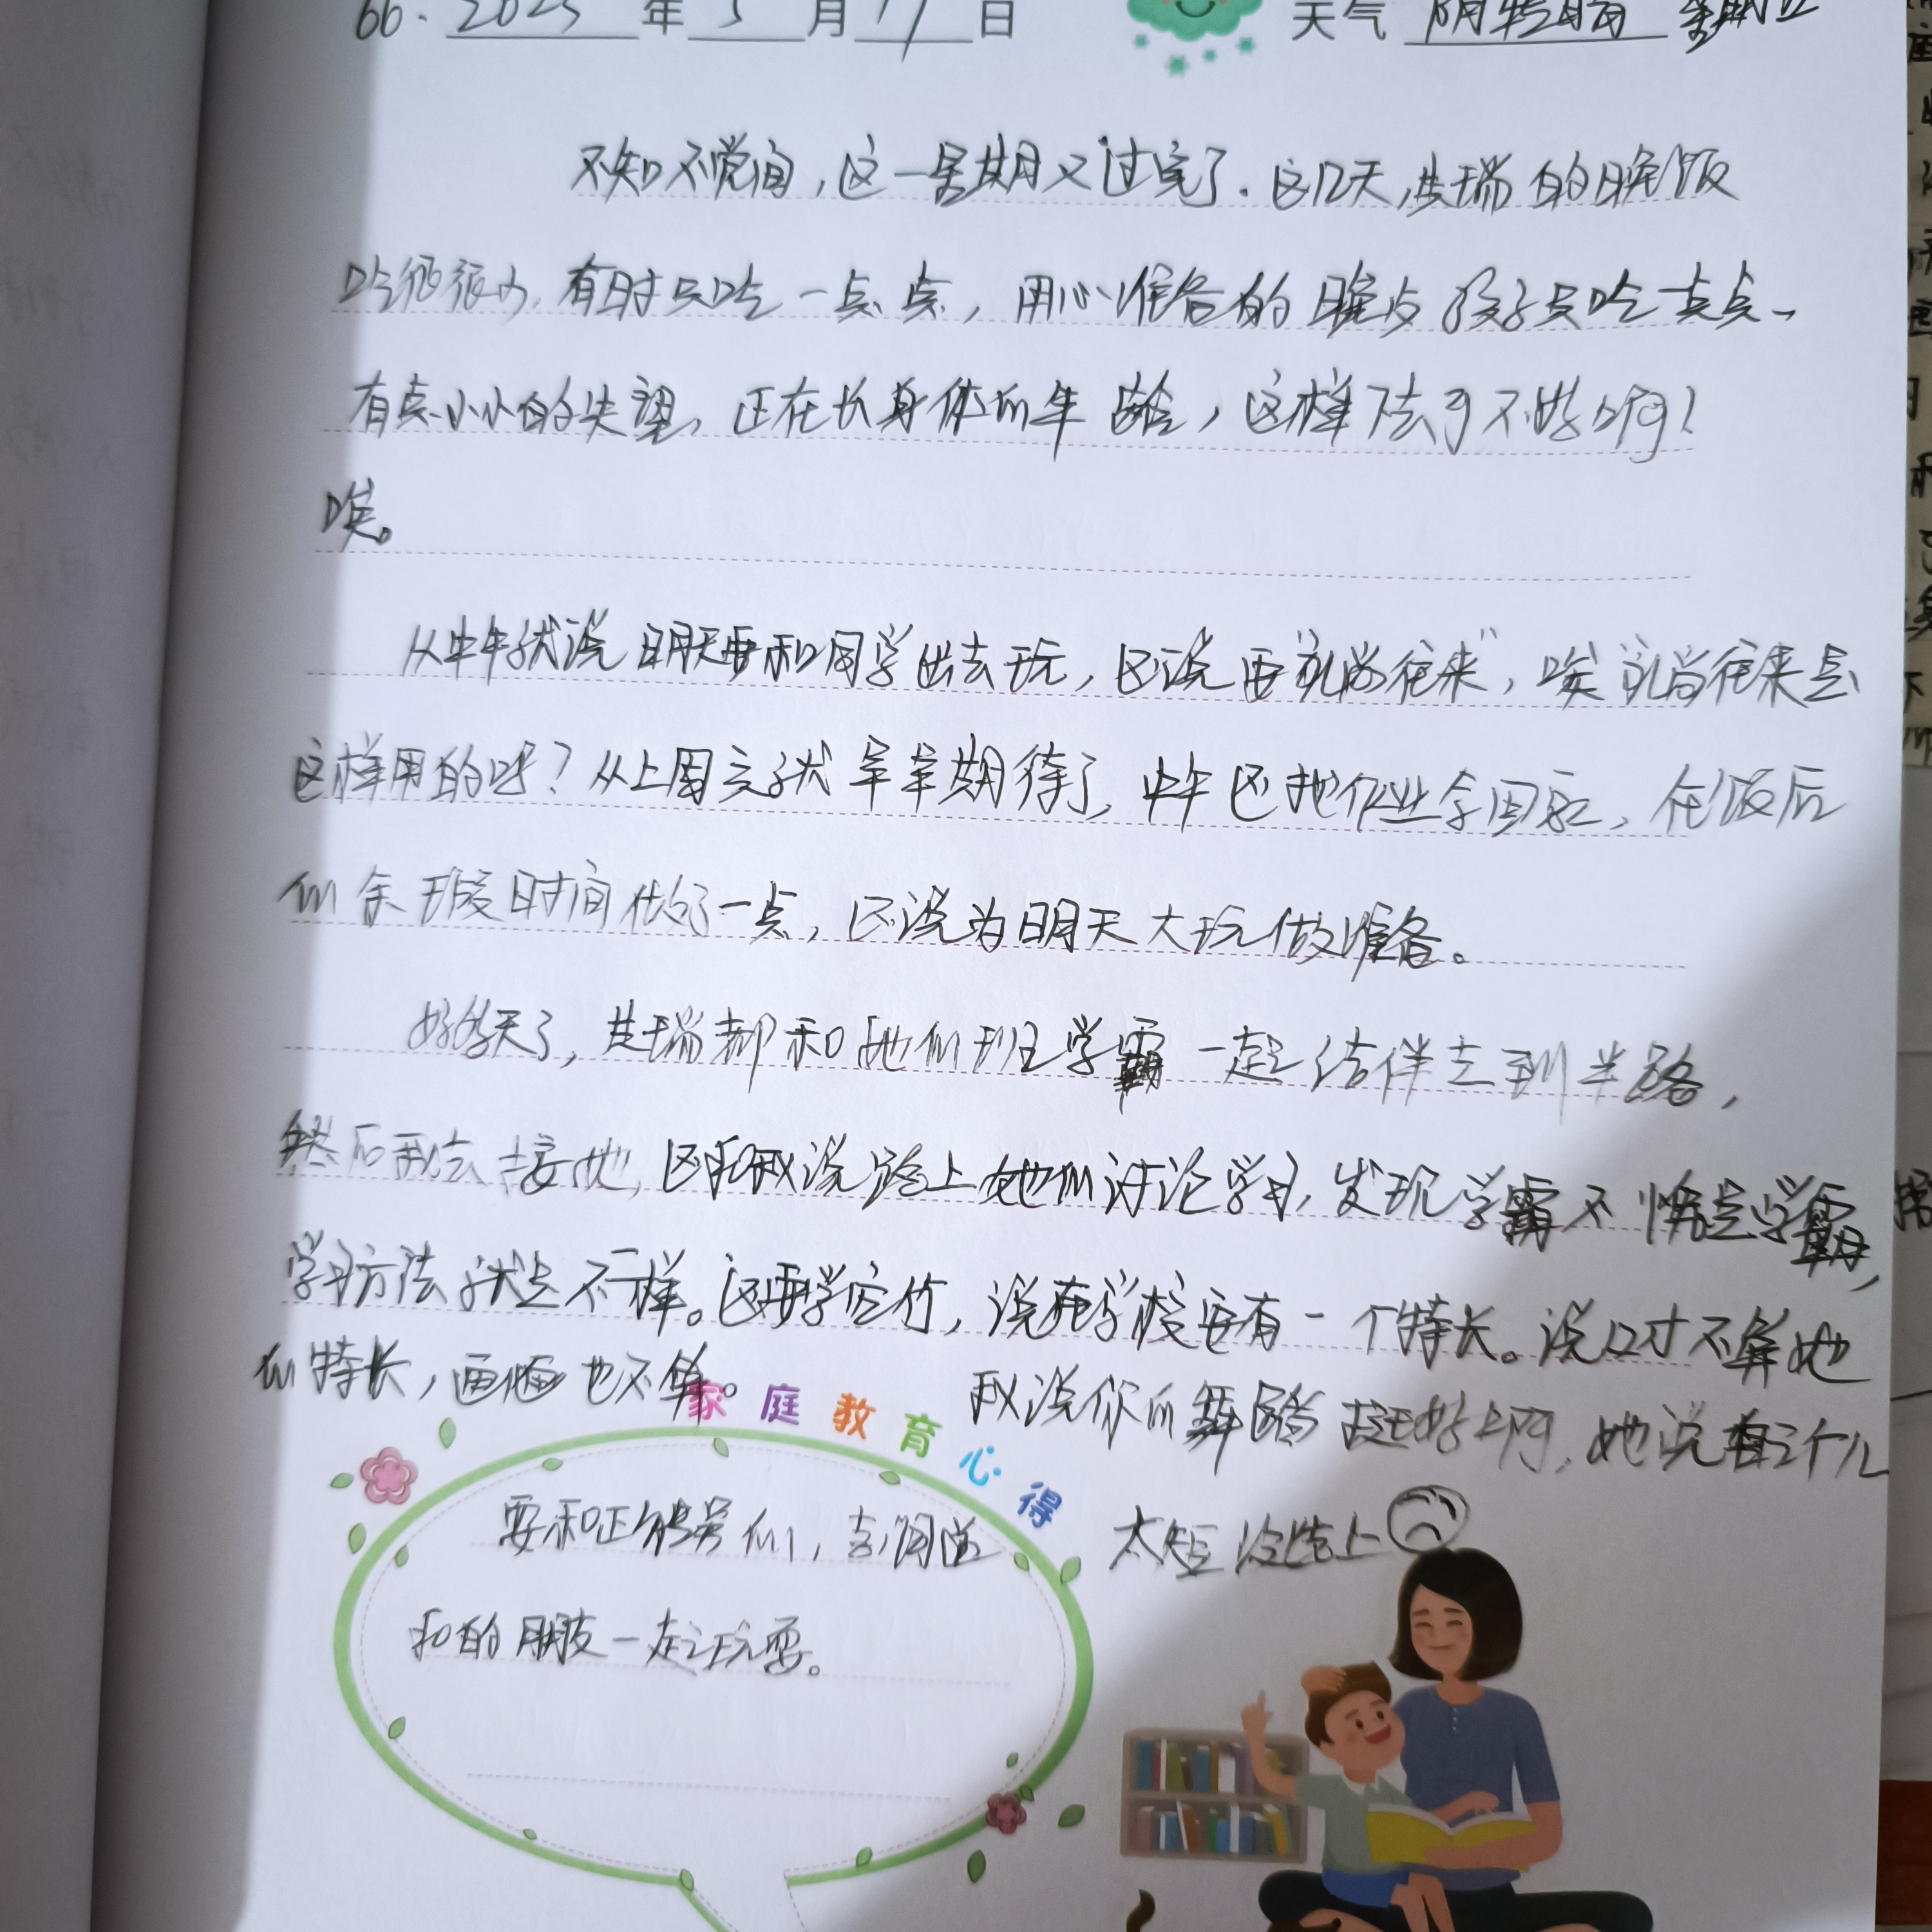 66. 2023年5月 日 天气 阴转晴 星期五
不知不觉间，这一星期又过完了。这几天，芸瑞的晚饭
吃得很少，有时只吃一点点，用心准备的晚饭孩子只吃一点点，
有点小小的失望，正在长身体的年龄，这样下去可不好啊！
唉。
从中午就说明天要和同学出去玩，还说要“礼尚往来”，唉礼尚往来是
这样用的吗？从上周六就早早期待了，中午还把作业拿回家，在饭后
的余暇时间做了一点，还说为明天大玩做准备。
好几天了，芸瑞都和她们班学霸一起结伴走到半路，
然后我去接她，还和我说路上她们讨论学习，发现学霸不愧是学霸，
学习方法就是不一样。还要学 竹，说在学校要有一个特长。说口才不算她
的特长，画画也不算。
我说你的舞蹈挺好啊，她说
太短 没 上
家庭教育心得
要和正能量的，
和的朋友一起玩耍。